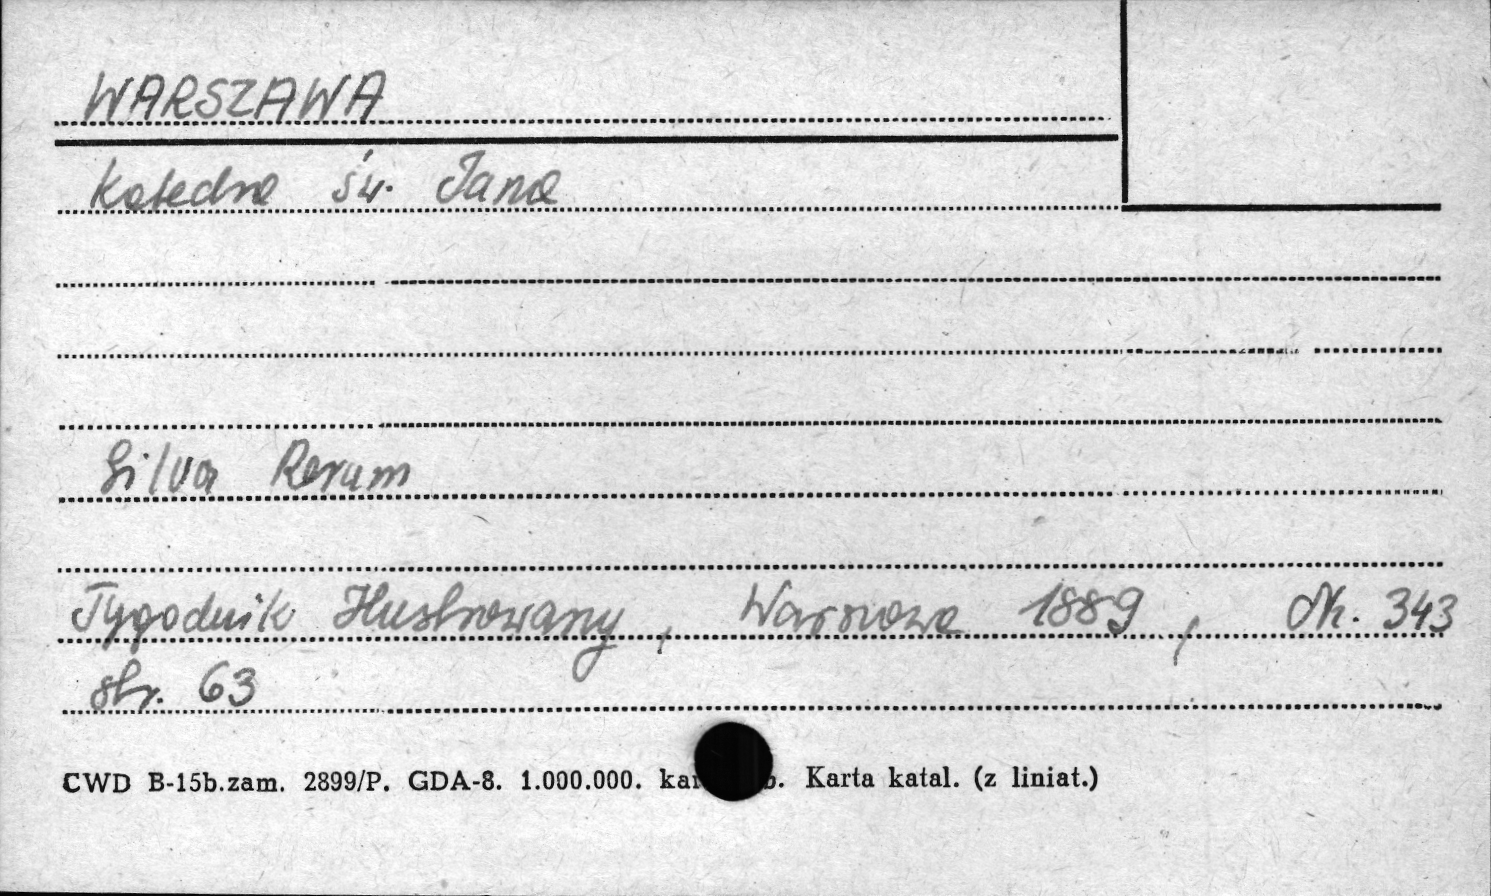 WARSZAWA
Katedra św. Jana
Silva Rerum
Tygodnik Ilustrowany, Warszawa 1889, Nr. 343
str. 63
CWD B-15b.zam. 2899/P. GDA-8. 1.000.000. Karta katal. (z liniat.)